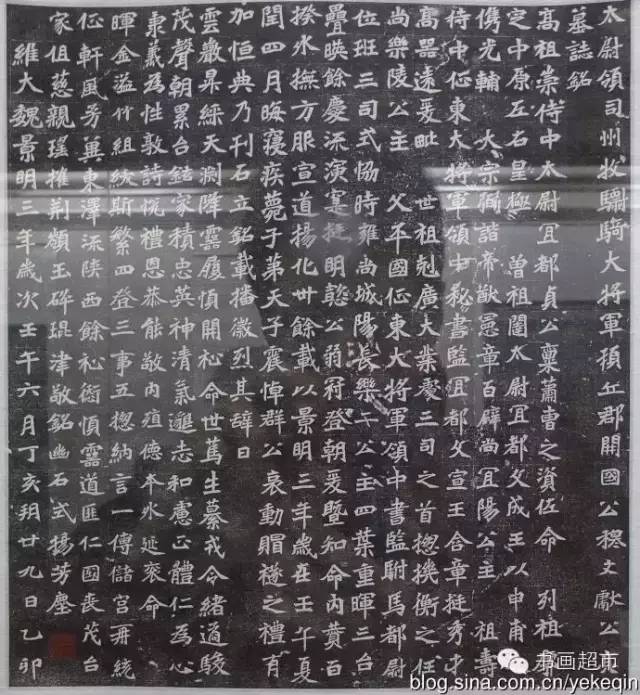 太尉領司州牧驃騎大將軍頓丘郡開國公穆文獻公亮
墓誌銘
高祖崇侍中太尉宜都貞公稟蕭曹之資佐命 列祖
定中原左右皇極 曾祖闥太尉宜都文成王以申甫
儁光輔 大宗弼諧帝猷憲章百辟尚宜陽公主 祖壽
侍中征東大將軍領中秘書監宜都文宣王含章挺秀中
高器遠爰毗 世祖剋廣大業處三司之首惣機衡之任
尚樂陵公主 父平國征東大將軍領中書監駙馬都尉
位班三司式協時雍尚城陽長樂二公主四葉重暉三台
疊映餘慶流演寔挺明懿公弱冠登朝爰暨知命內贊百
揆外撫方服宣道揚化卅餘載以景明三年歲在壬午夏
閏四月晦寢疾薨于第天子震悼群公哀動賵襚之禮有
加恒典乃刊石立銘載播徽烈其辭曰
雲巖昇綵天淵降靈履順開祉命世篤生纂戎令緒邁駿
茂聲朝累台鉉家積忠英神清氣邈志和慮正體仁為心
秉義為性敦詩悅禮恩恭能敬內殖德本外延衮命
暉金溢竹組紱斯繁四登三事五惣納言一傅儲宮再統
征軒風芳冀東澤流陝西餘祉銜慎靈道匪仁國喪茂台
家徂慈親瑤摧荊嶺玉碎琨津敬銘幽石式揚芳塵
維大魏景明三年歲次壬午六月丁亥朔廿九日乙卯
书画超市
blog.sina.com.cn/yekeqin